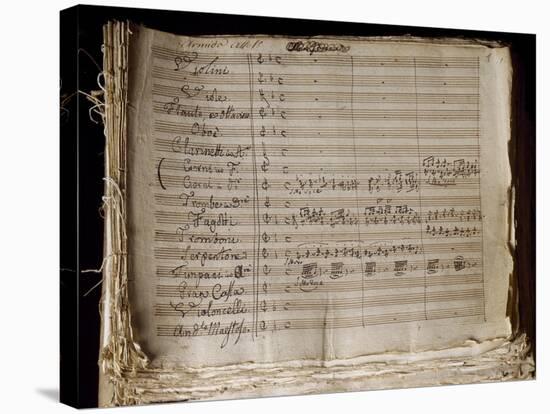 Armida Atto 1º
Violini
Viole
Flauto, e Ottavino
Oboè
Clarinetti in A
Corni in F
Corni in
Trombe in
Fagotti
Tromboni
Serpentone
Timpani in
Gran Cassa
Violoncelli
And.te Maestoso